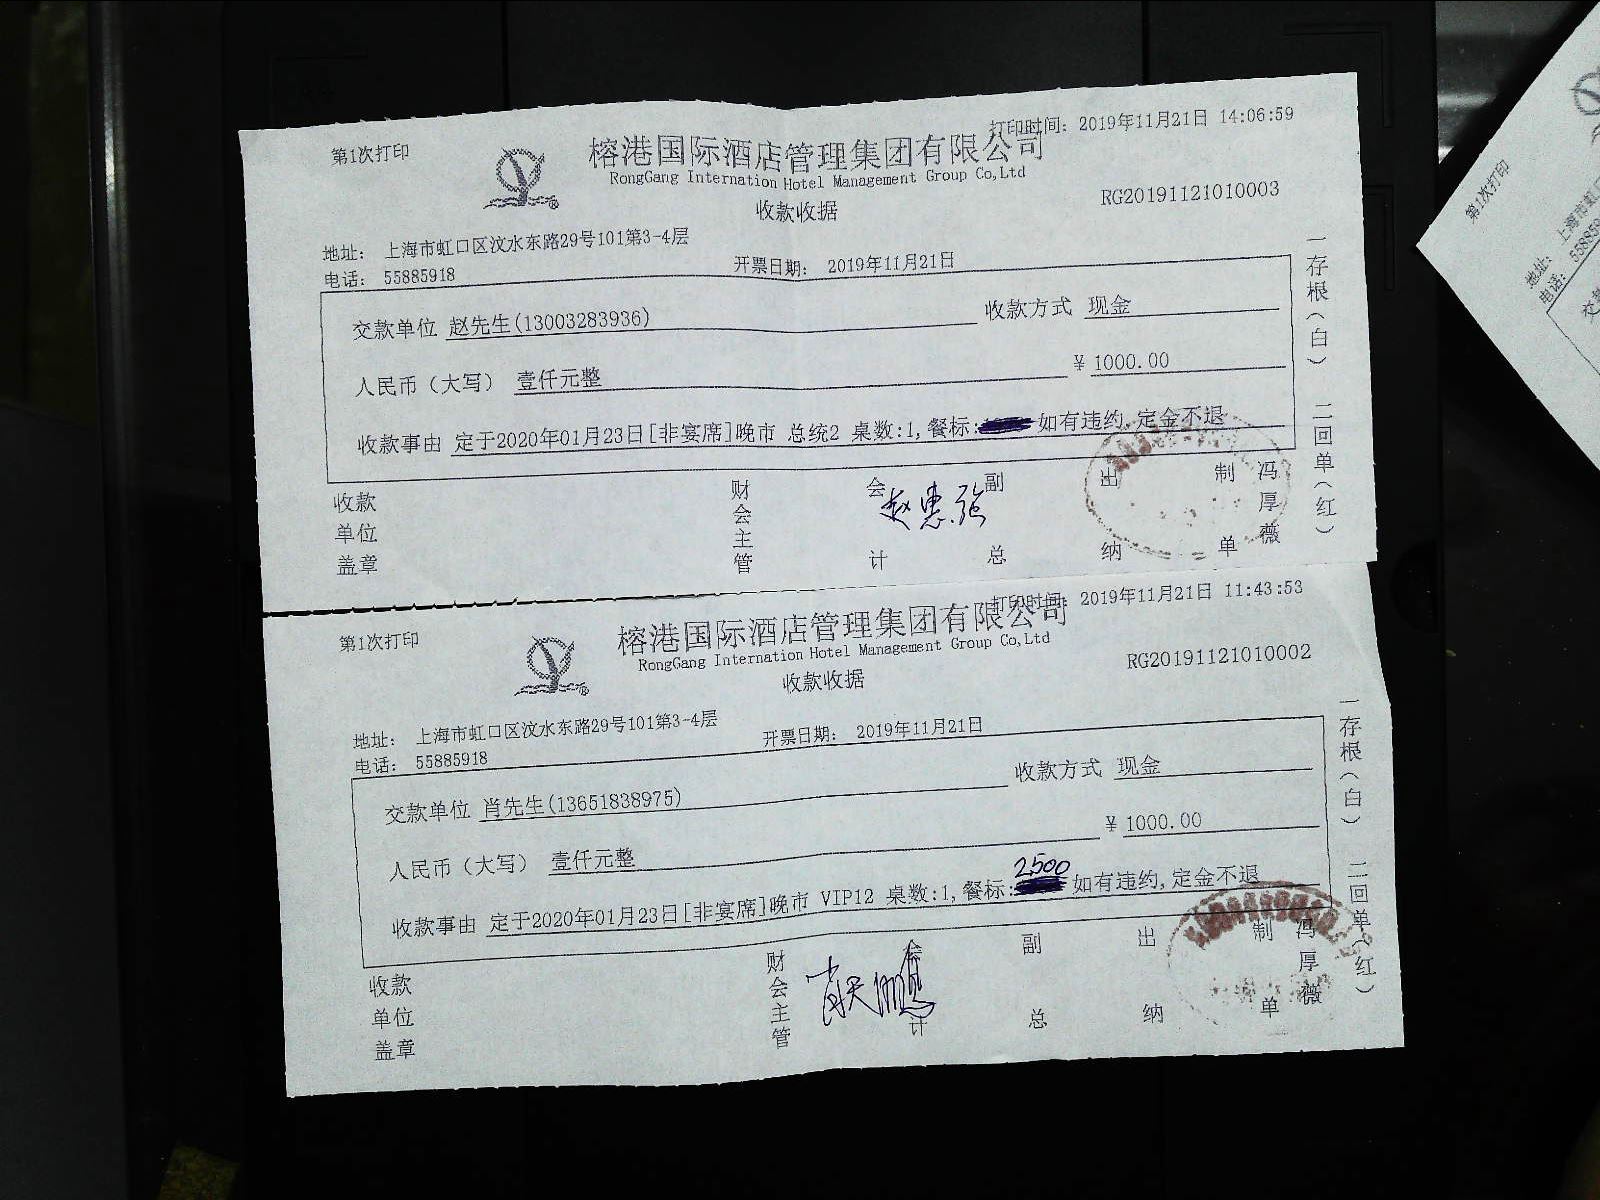 第1次打印
打印时间: 2019年11月21日 14:06:59
榕港国际酒店管理集团有限公司
RongGang Internation Hotel Management Group Co,Ltd
收款收据
RG20191121010003
地址: 上海市虹口区汶水东路29号101第3-4层
电话: 55885918
开票日期: 2019年11月21日
交款单位 赵先生(13003283936)
收款方式 现金
人民币（大写） 壹仟元整
¥ 1000.00
收款事由 定于2020年01月23日[非宴席]晚市 总统2 桌数:1,餐标: 如有违约,定金不退
收款单位盖章
财会主管
会计
副总
出纳
制单
冯厚薇
一存根（白） 二回单（红）
第1次打印
打印时间: 2019年11月21日 11:43:53
榕港国际酒店管理集团有限公司
RongGang Internation Hotel Management Group Co,Ltd
收款收据
RG20191121010002
地址: 上海市虹口区汶水东路29号101第3-4层
电话: 55885918
开票日期: 2019年11月21日
交款单位 肖先生(13651838975)
收款方式 现金
人民币（大写） 壹仟元整
¥ 1000.00
2500
收款事由 定于2020年01月23日[非宴席]晚市 VIP12 桌数:1,餐标: 如有违约,定金不退
收款单位盖章
财会主管
会计
副总
出纳
制单
冯厚薇
一存根（白） 二回单（红）
第1次打印
地址:
电话: